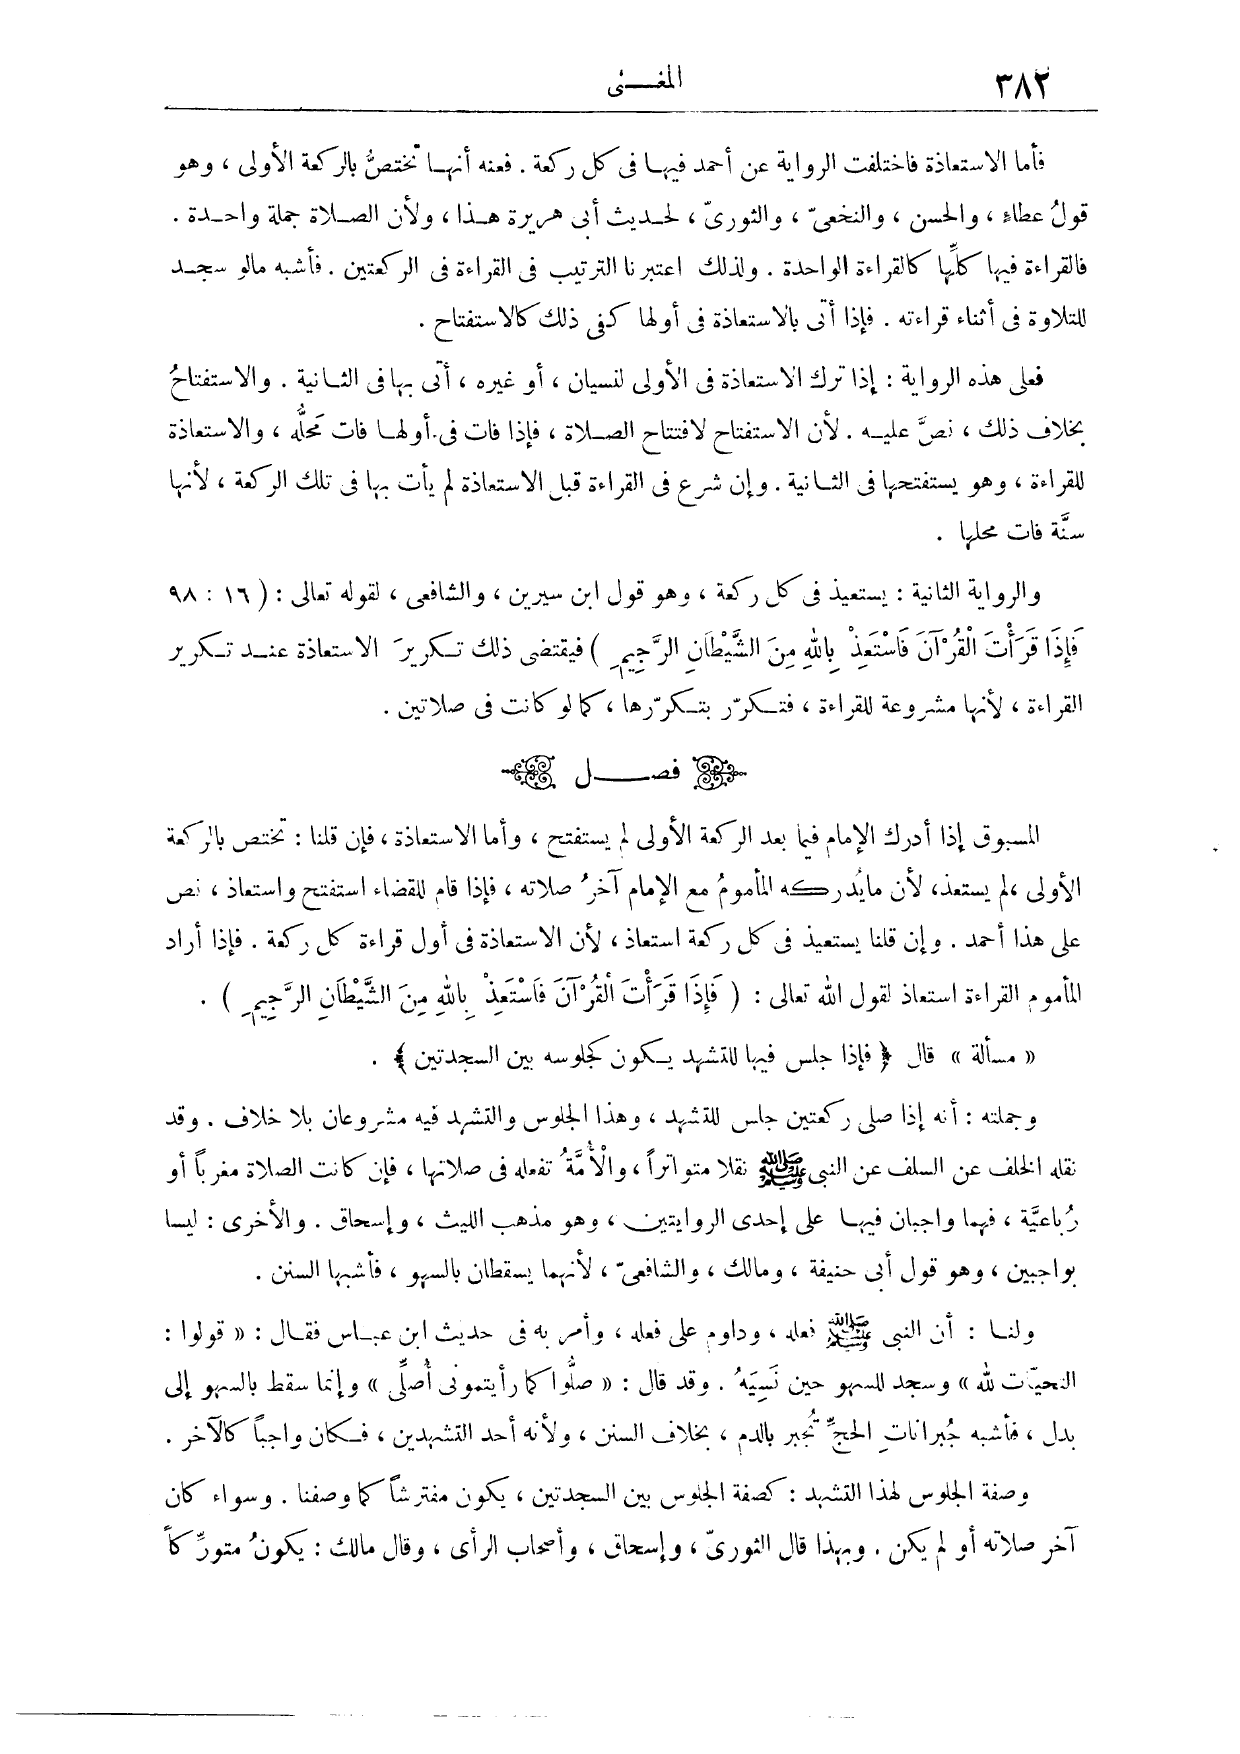 ٣٨٢
المغـــنى
فأما الاستعاذة فاختلفت الرواية عن أحمد فيهـا فى كل ركعة . فعنه أنهـا تختصُّ بالركعة الأولى ، وهو
قولُ عطاء ، والحسن ، والنخعىّ ، والثورىّ ، لحـديث أبى هريرة هـذا ، ولأن الصـلاة جملة واحـدة .
فالقراءة فيها كلِّها كالقراءة الواحدة . ولذلك اعتبرنا الترتيب فى القراءة فى الركعتين . فأشبه مالو سجـد
للتلاوة فى أثناء قراءته . فإذا أتى بالاستعاذة فى أولها كفى ذلك كالاستفتاح .
فعلى هذه الرواية : إذا ترك الاستعاذة فى الأولى لنسيان ، أو غيره ، أتى بها فى الثـانية . والاستفتاحُ
بخلاف ذلك ، نصَّ عليـه . لأن الاستفتاح لافتتاح الصـلاة ، فإذا فات فى أولهـا فات مَحلُّه ، والاستعاذة
للقراءة ، وهو يستفتحها فى الثـانية . وإن شرع فى القراءة قبل الاستعاذة لم يأت بها فى تلك الركعة ، لأنها
سنَّة فات محلها .
والرواية الثانية : يستعيذ فى كل ركعة ، وهو قول ابن سيرين ، والشافعى ، لقوله تعالى : ( ١٦ : ٩٨
فَإِذَا قَرَأْتَ الْقُرْآنَ فَاسْتَعِذْ بِاللهِ مِنَ الشَّيْطَانِ الرَّجِيمِ ) فيقتضى ذلك تـكريرَ الاستعاذة عنـد تـكرير
القراءة ، لأنها مشروعة للقراءة ، فتـكرّر بتـكرّرها ، كما لو كانت فى صلاتين .
فصـــــل
المسبوق إذا أدرك الإمام فيما بعد الركعة الأولى لم يستفتح ، وأما الاستعاذة ، فإن قلنا : تختص بالركعة
الأولى ،لم يستعذ، لأن مايُدركه المأمومُ مع الإمام آخرُ صلاته ، فإذا قام للقضاء استفتح واستعاذ ، نص
على هذا أحمد . وإن قلنا يستعيذ فى كل ركعة استعاذ ، لأن الاستعاذة فى أول قراءة كل ركعة . فإذا أراد
المأموم القراءة استعاذ لقول الله تعالى : ( فَإِذَا قَرَأْتَ الْقُرْآنَ فَاسْتَعِذْ بِاللهِ مِنَ الشَّيْطَانِ الرَّجِيمِ ) .
« مسألة » قال ﴿ فإذا جلس فيها للتشهد يـكون كجلوسه بين السجدتين ﴾ .
وجملته : أنه إذا صلى ركعتين جلس للتشهد ، وهذا الجلوس والتشهد فيه مشروعان بلا خلاف . وقد
نقله الخلف عن السلف عن النبى ﷺ نقلا متواتراً ، والْأُمَّةُ تفعله فى صلاتها ، فإن كانت الصلاة مغرباً أو
رُباعيَّة ، فهما واجبان فيهـا على إحدى الروايتين ، وهو مذهب الليث ، وإسحاق . والأخرى : ليسا
بواجبين ، وهو قول أبى حنيفة ، ومالك ، والشافعىّ ، لأنهما يسقطان بالسهو ، فأشبها السنن .
ولنـا : أن النبى ﷺ فعله ، وداوم على فعله ، وأمر به فى حديث ابن عبـاس فقـال : « قولوا :
التحيّات لله » وسجد للسهو حين نَسِيَهُ . وقد قال : « صلُّوا كما رأيتمونى أُصلِّى » وإنما سقط بالسهو إلى
بدل ، فأشبه جُبرانات الحجِّ تُجبر بالدم ، بخلاف السنن ، ولأنه أحد التشهدين ، فـكان واجباً كالآخر .
وصفة الجلوس لهذا التشهد : كصفة الجلوس بين السجدتين ، يكون مفترشاً كما وصفنا . وسواء كان
آخر صلاته أو لم يكن . وبهذا قال الثورىّ ، وإسحاق ، وأصحاب الرأى ، وقال مالك : يكونُ متورِّكاً